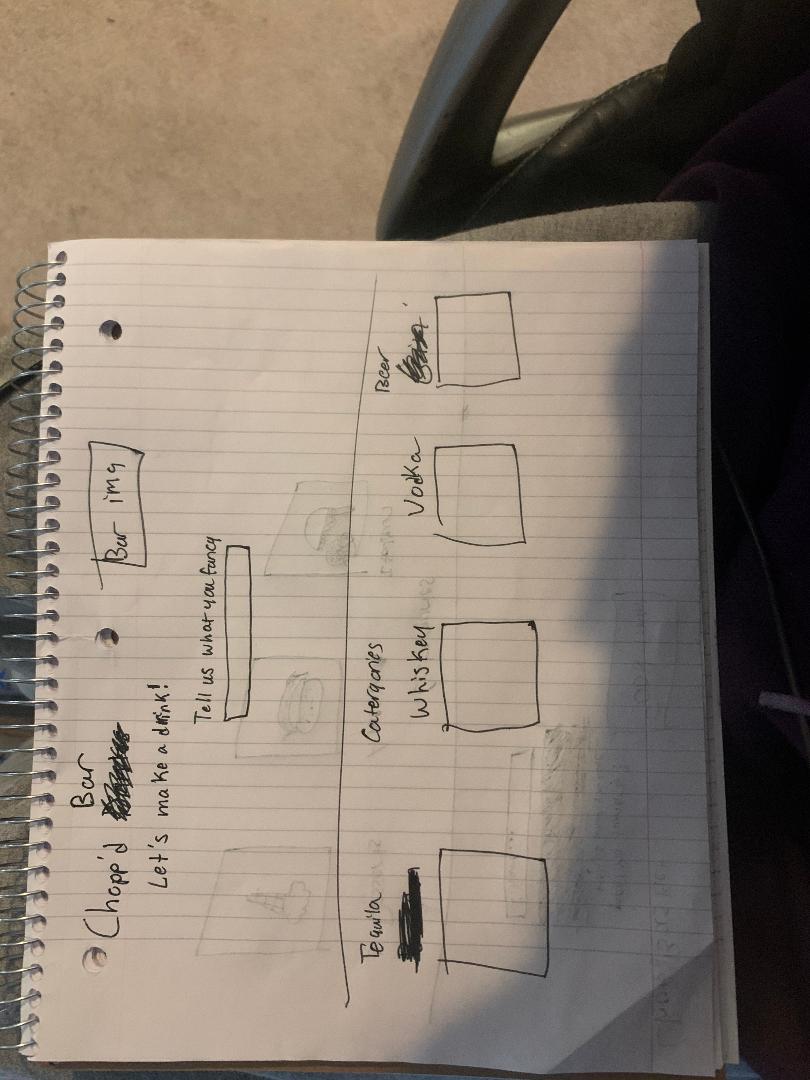 Chopp'd Bar
Bar img
Let's make a drink!
Tell us what you fancy
Catergories
Tequila
Whiskey
Vodka
Beer